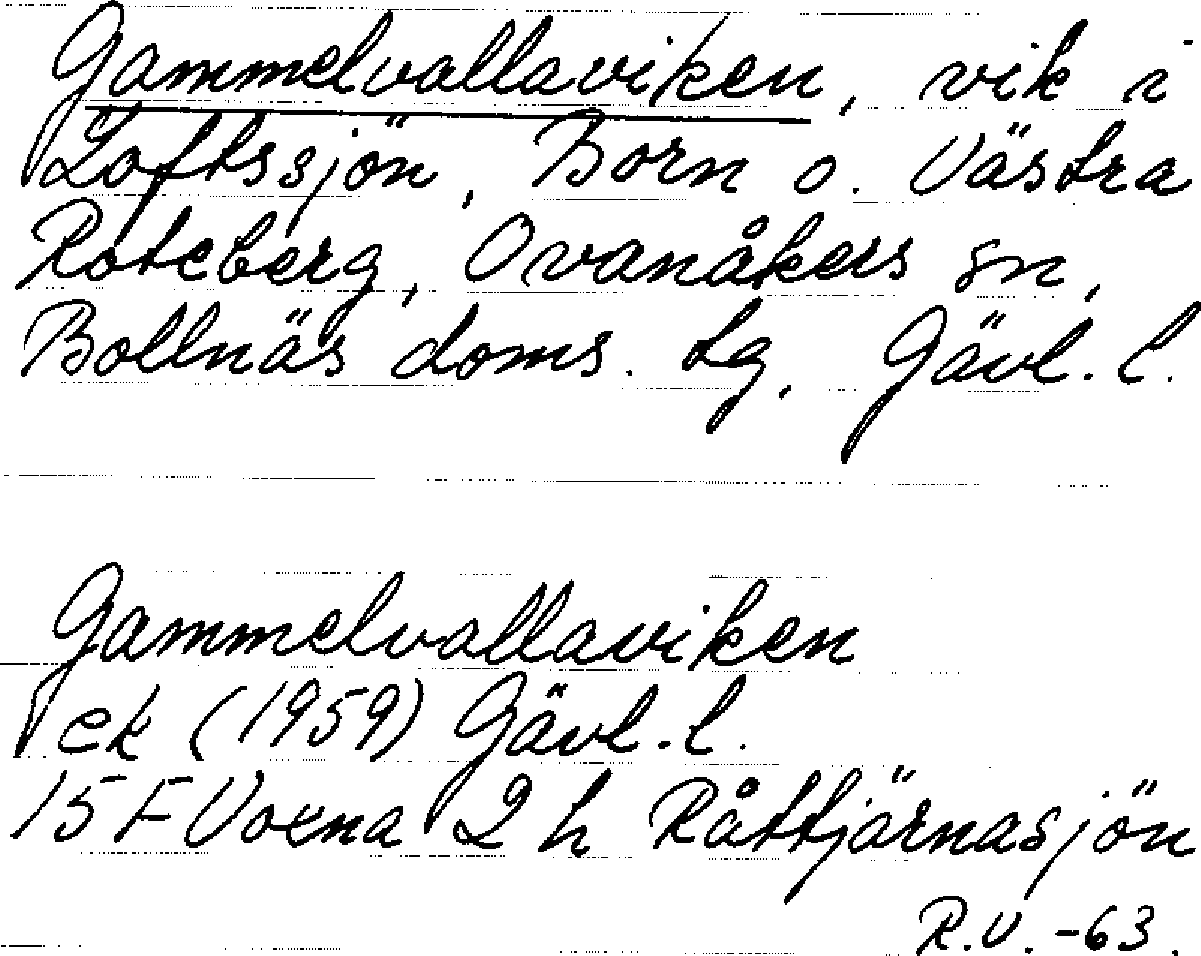 Gammelvallaviken, vik i
Loftssjön, Born o. Västra
Roteberg, Ovanåkers sn,
Bollnäs doms. tg, Gävl. l.
Gammelvallaviken
ek (1959) Gävl. l.
15 F Voxna 2 h Råttjärnasjön
R.V. -63.